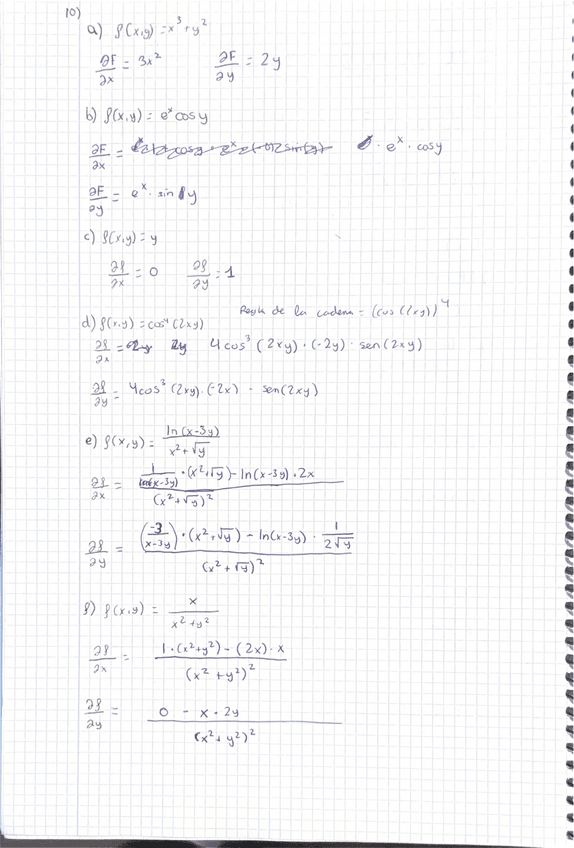 10)
a) f(x,y) = x³ + y²
∂F/∂x = 3x² ∂F/∂y = 2y
b) f(x,y) = eˣ cos y
∂F/∂x = · eˣ · cos y
∂F/∂y = eˣ · sin y
c) f(x,y) = y
∂f/∂x = 0 ∂f/∂y = 1
Regla de la cadena = (cos (2xy))⁴
d) f(x,y) = cos⁴ (2xy)
∂f/∂x = 4cos³ (2xy) · (-2y) · sen(2xy)
∂f/∂y = 4cos³ (2xy) · (-2x) · sen(2xy)
e) f(x,y) = ln(x-3y) / (x² + √y)
∂f/∂x = (1/(x-3y) · (x² + √y) - ln(x-3y) · 2x) / (x² + √y)²
∂f/∂y = ((-3/(x-3y)) · (x² + √y) - ln(x-3y) · 1/(2√y)) / (x² + √y)²
f) f(x,y) = x / (x² + y²)
∂f/∂x = (1 · (x² + y²) - (2x) · x) / (x² + y²)²
∂f/∂y = (0 - x · 2y) / (x² + y²)²